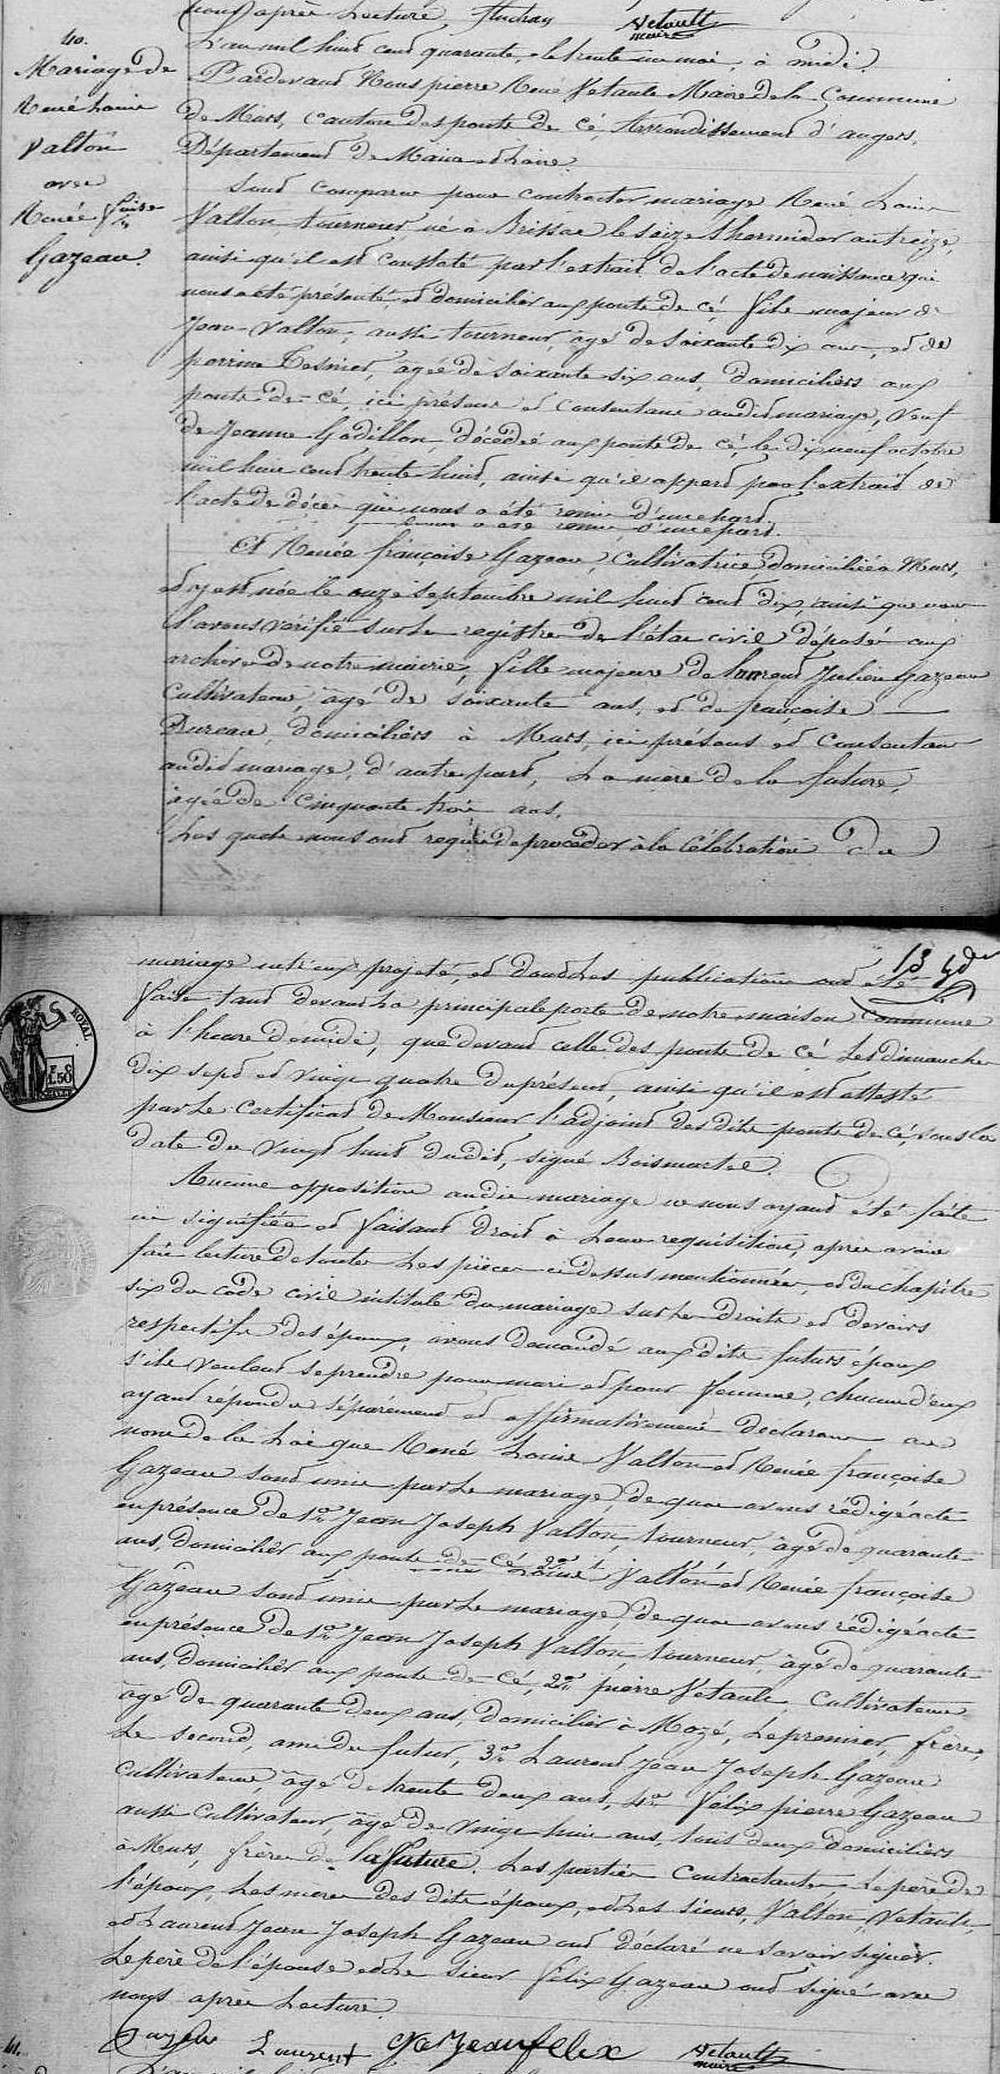 nous après Lecture, Vétault
maire
40.
Mariage de
René Louis
Valton
avec
Renée fçoise
Gazeau.
L'an mil huit cent quarante, le trente un mai, à midi.
Pardevant Nous pierre René Vétault Maire de la Commune
de Murs, Canton des ponts de Cé, Arrondissement d'angers,
Département de Maine et Loire.
Sont comparus pour contracter mariage René Louis
Valton tourneur, né à Brissac le seize thermidor an treize,
ainsi qu'il est constaté par l'extrait de l'acte de naissance qui
nous a été présenté et domicilié aux ponts de cé, fils majeur de
Jean Valton, aussi tourneur, âgé de soixante dix ans, et de
perrine Besnier, âgée de soixante six ans, domiciliés aux
ponts de-cé, ici présens et consentans audit mariage, Veuf
de Jeanne Godillon, décédée aux ponts de cé, le dix neuf octobre
mil huit cent trente huit, ainsi qu'il appert par l'extrait de
l'acte de décès qui nous a été remis d'une part.
nous a été remis d'une part.
Et Renée françoise Gazeau, Cultivatrice, domiciliée à Murs,
et y est née le onze septembre mil huit cent dix, ainsi que nous
l'avons vérifié sur le registre de l'état civil déposé aux
archives de notre mairie, fille majeure de Laurent Julien Gazeau
Cultivateur, âgé de soixante ans, et de françoise
Bureau domiciliés à Murs, ici présens et consentans
audit mariage, d'autre part, La mère de la future,
âgée de Cinquante trois ans.
Les quels nous ont requis de procéder à la Célébration du
mariage entr'eux projeté, et dont les publications ont été
faites tant devant la principale porte de notre maison Commune
à l'heure de midi, que devant celle des ponts de Cé Les dimanches
dix sept et vingt quatre du présent, ainsi qu'il est attesté
par le certificat de Monsieur l'adjoint des dits ponts de cé, sous la
date du vingt huit dudit, signé Boismartel.
Aucune opposition audit mariage ne nous ayant été faite
ni signifiée et faisant droit à Leur requisition, après avoir
fait lecture de toutes Les pièces ci dessus mentionnées, et du chapitre
six du code civil intitulé du mariage sur les droits et devoirs
respectifs des époux, avons demandé aux dits futurs époux
s'ils veulent se prendre pour mari et pour femme, chacun d'eux
ayant répondu séparément et affirmativement déclarons au
nom de la Loi que René Louis Valton et Renée françoise
Gazeau sont unis par le mariage, de quoi avons rédigé acte
en présence de 1° Jean Joseph Valton, tourneur, âgé de quarante
ans, domicilié aux ponts de Cé, 2° Louis Valton et Renée françoise
Gazeau sont unis par le mariage, de quoi avons rédigé acte
en présence de 1° Jean Joseph Valton, tourneur, âgé de quarante
ans, domicilié aux ponts de-cé, 2° pierre Vétault, Cultivateur
âgé de quarante deux ans, domicilié à Mozé, Le premier, frère,
Le second, ami du futur, 3° Laurent Jean Joseph Gazeau
Cultivateur, âgé de trente deux ans, 4° félix pierre Gazeau
aussi Cultivateur, âgé de vingt huit ans, tous deux domiciliés
à Murs, frères de la future. Les parties Contractantes Le père de
l'époux, Les mères des dits époux, et Les sieurs, Valton, Vétault,
et Laurent Jean Joseph Gazeau ont déclaré ne savoir signer.
Le père de l'épouse et Le sieur félix Gazeau ont signé avec
nous après Lecture.
Gazeau Laurent Gazeau felix Vétault
maire
41.
ROYAL